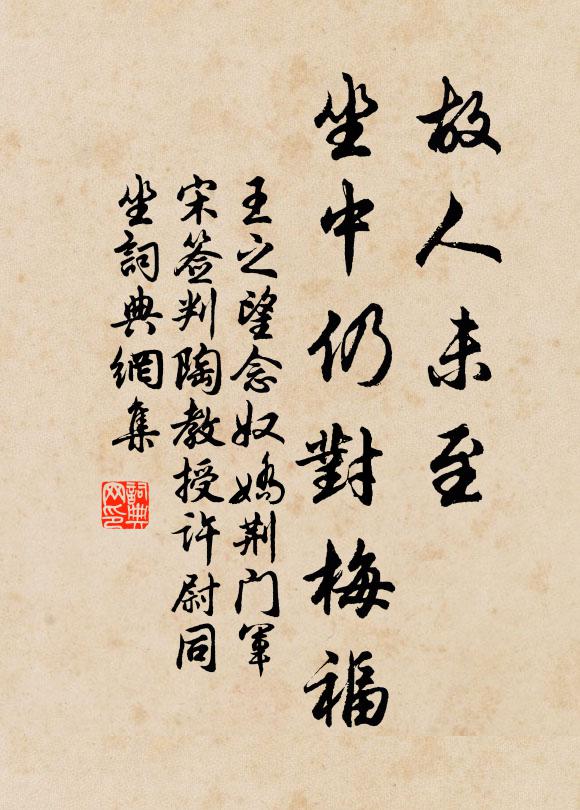 故人未至
坐中仍對梅福
王之望念奴嬌荆门軍
宋签判陶教授许尉同
坐詞典網集
詞典网印